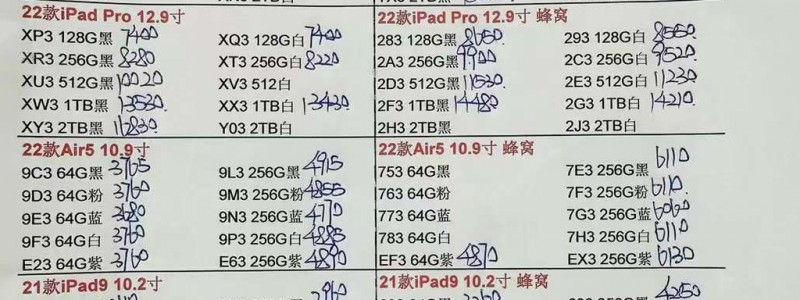 22款iPad Pro 12.9寸 22款iPad Pro 12.9寸 蜂窝
XP3 128G黑 7400 XQ3 128G白 7400 283 128G黑 8650 293 128G白 8550
XR3 256G黑 8280 XT3 256G白 8220 2A3 256G黑 9900 2C3 256G白 9520
XU3 512G黑 10020 XV3 512白 2D3 512G黑 11530 2E3 512G白 11230
XW3 1TB黑 13530 XX3 1TB白 13430 2F3 1TB黑 14480 2G3 1TB白 14210
XY3 2TB黑 16830 Y03 2TB白 2H3 2TB黑 2J3 2TB白
22款Air5 10.9寸 22款Air5 10.9寸 蜂窝
9C3 64G黑 3765 9L3 256G黑 4915 753 64G黑 7E3 256G黑 6110
9D3 64G粉 3760 9M3 256G粉 4855 763 64G粉 7F3 256G粉 6110
9E3 64G蓝 3680 9N3 256G蓝 4770 773 64G蓝 7G3 256G蓝 6060
9F3 64G白 3760 9P3 256G白 4885 783 64G白 7H3 256G白 6110
E23 64G紫 3760 E63 256G紫 4890 EF3 64G紫 4870 EX3 256G紫 6130
21款iPad9 10.2寸 21款iPad9 10.2寸 蜂窝